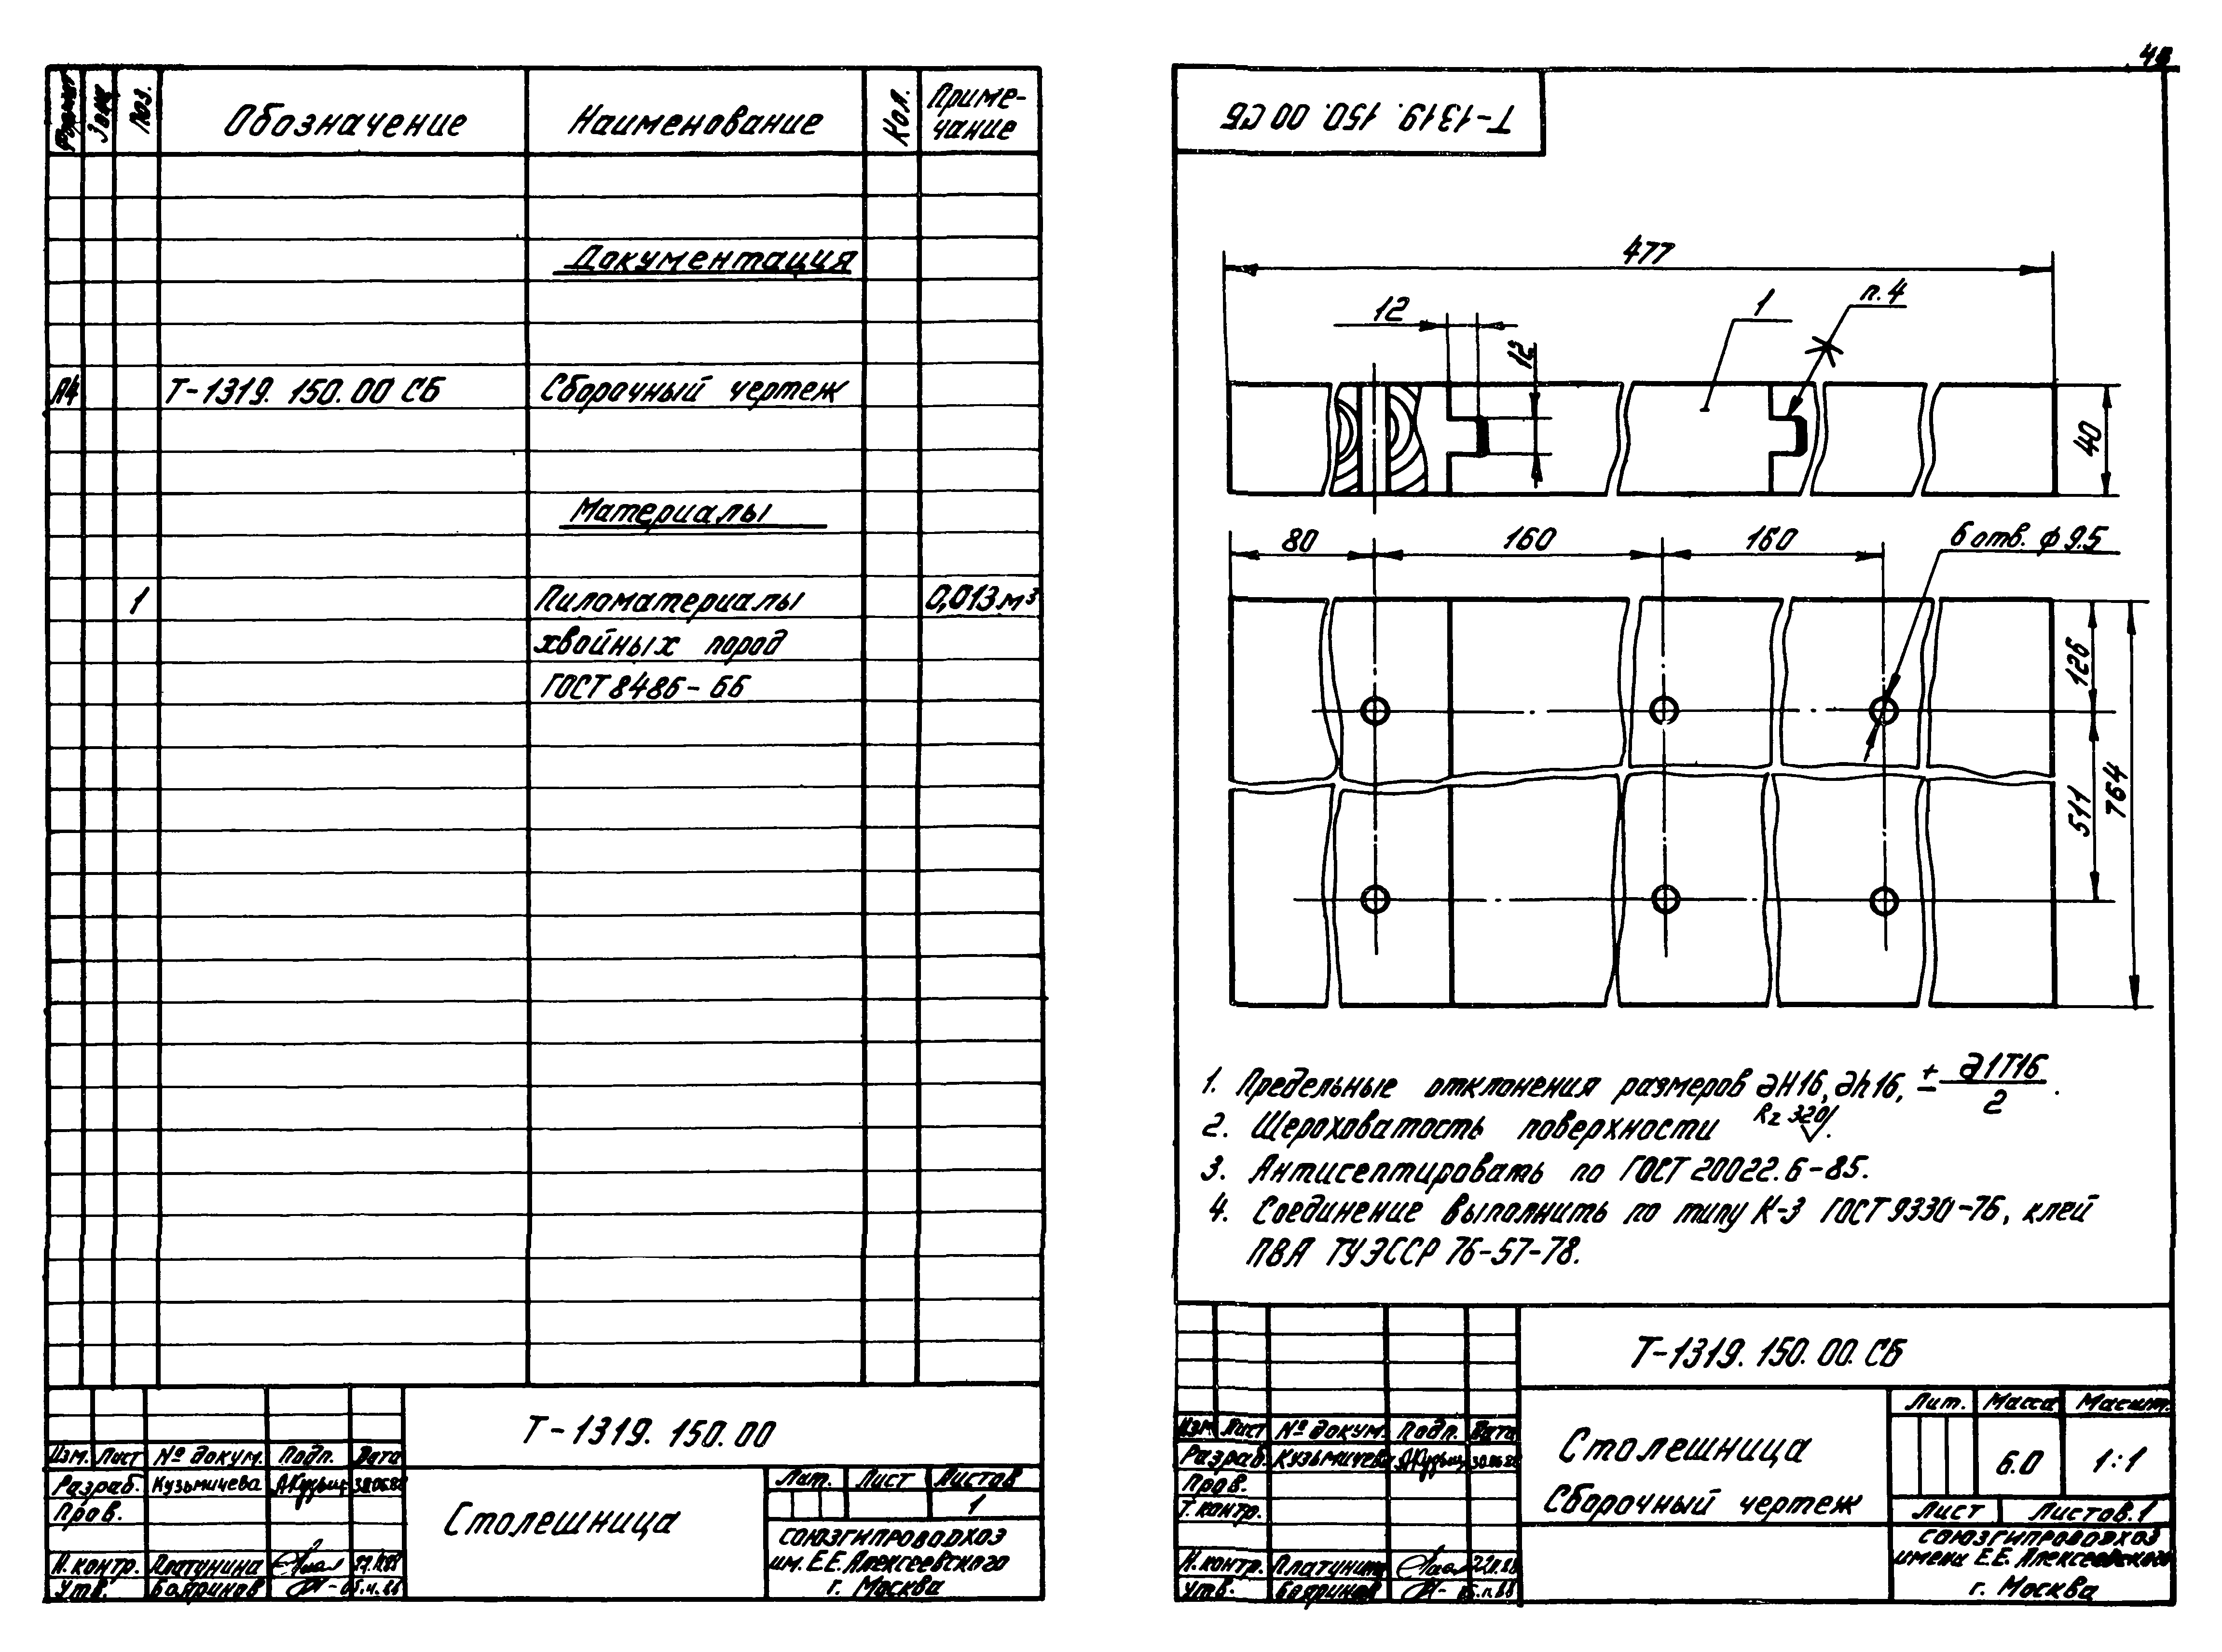 Формат Зона Поз. Обозначение Наименование Кол. Приме-
чание
Документация
А4 Т-1319. 150. 00 СБ Сборочный чертеж
Материалы
1 Пиломатериалы 0,013 м³
хвойных пород
ГОСТ 8486-66
Т-1319. 150. 00
Изм. Лист № докум. Подп. Дата
Разраб. Кузьмичева
Пров.
Н. контр. Платунина
Утв. Бояринов
Столешница
Лит. Лист Листов
1
СОЮЗГИПРОВОДХОЗ
им. Е.Е. Алексеевского
г. Москва
Т-1319. 150. 00 СБ
477
12
12
1
п. 4
40
80 160 160
6 отв. ф 9.5
126
511
764
1. Предельные отклонения размеров ∂H16, ∂h16, ± ∂1T16/2.
2. Шероховатость поверхности Rz 320.
3. Антисептировать по ГОСТ 20022. 6-85.
4. Соединение выполнить по типу К-3 ГОСТ 9330-76, клей
ПВА ТУ ЭССР 76-57-78.
Т-1319. 150. 00. СБ
Изм Лист № докум. Подп. Дата
Разраб. Кузьмичева
Пров.
Т. контр.
Н. контр. Платунина
Утв. Бояринов
Столешница
Сборочный чертеж
Лит. Масса Масшт.
6.0 1:1
Лист Листов. 1
СОЮЗГИПРОВОДХОЗ
имени Е.Е. Алексеевского
г. Москва